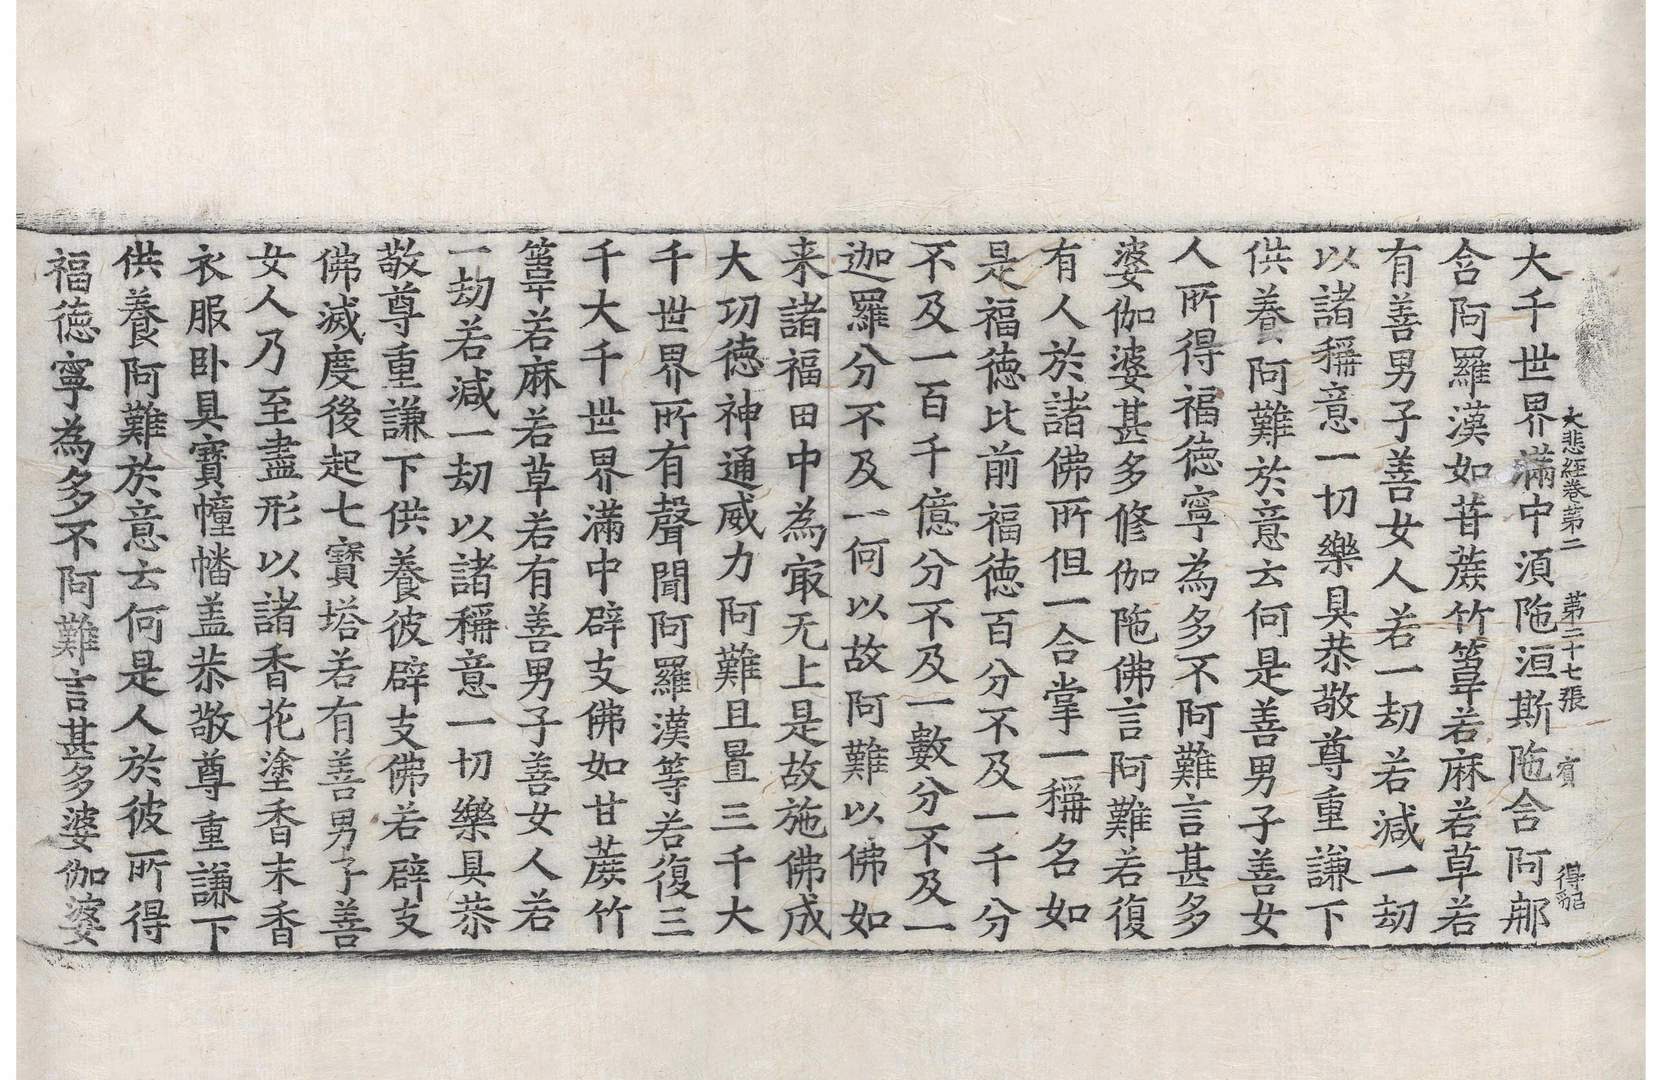 大悲經卷第二 第二十七張 賓 得韶
大千世界滿中湏陁洹斯陁含阿那
含阿羅漢如苷蔗竹葦若麻若草若
有善男子善女人若一劫若減一劫
以諸稱意一切樂具恭敬尊重謙下
供養阿難於意云何是善男子善女
人所得福德寧為多不阿難言甚多
婆伽婆甚多修伽陁佛言阿難若復
有人於諸佛所但一合掌一稱名如
是福德比前福德百分不及一千分
不及一百千億分不及一數分不及一
迦羅分不及一何以故阿難以佛如
来諸福田中為㝡无上是故施佛成
大功德神通威力阿難且置三千大
千世界所有聲聞阿羅漢等若復三
千大千世界滿中辟支佛如甘蔗竹
葦若麻若草若有善男子善女人若
一劫若減一劫以諸稱意一切樂具恭
敬尊重謙下供養彼辟支佛若辟支
佛滅度後起七寶塔若有善男子善
女人乃至盡形以諸香花塗香末香
衣服卧具寶幢幡盖恭敬尊重謙下
供養阿難於意云何是人於彼所得
福德寧為多不阿難言甚多婆伽婆